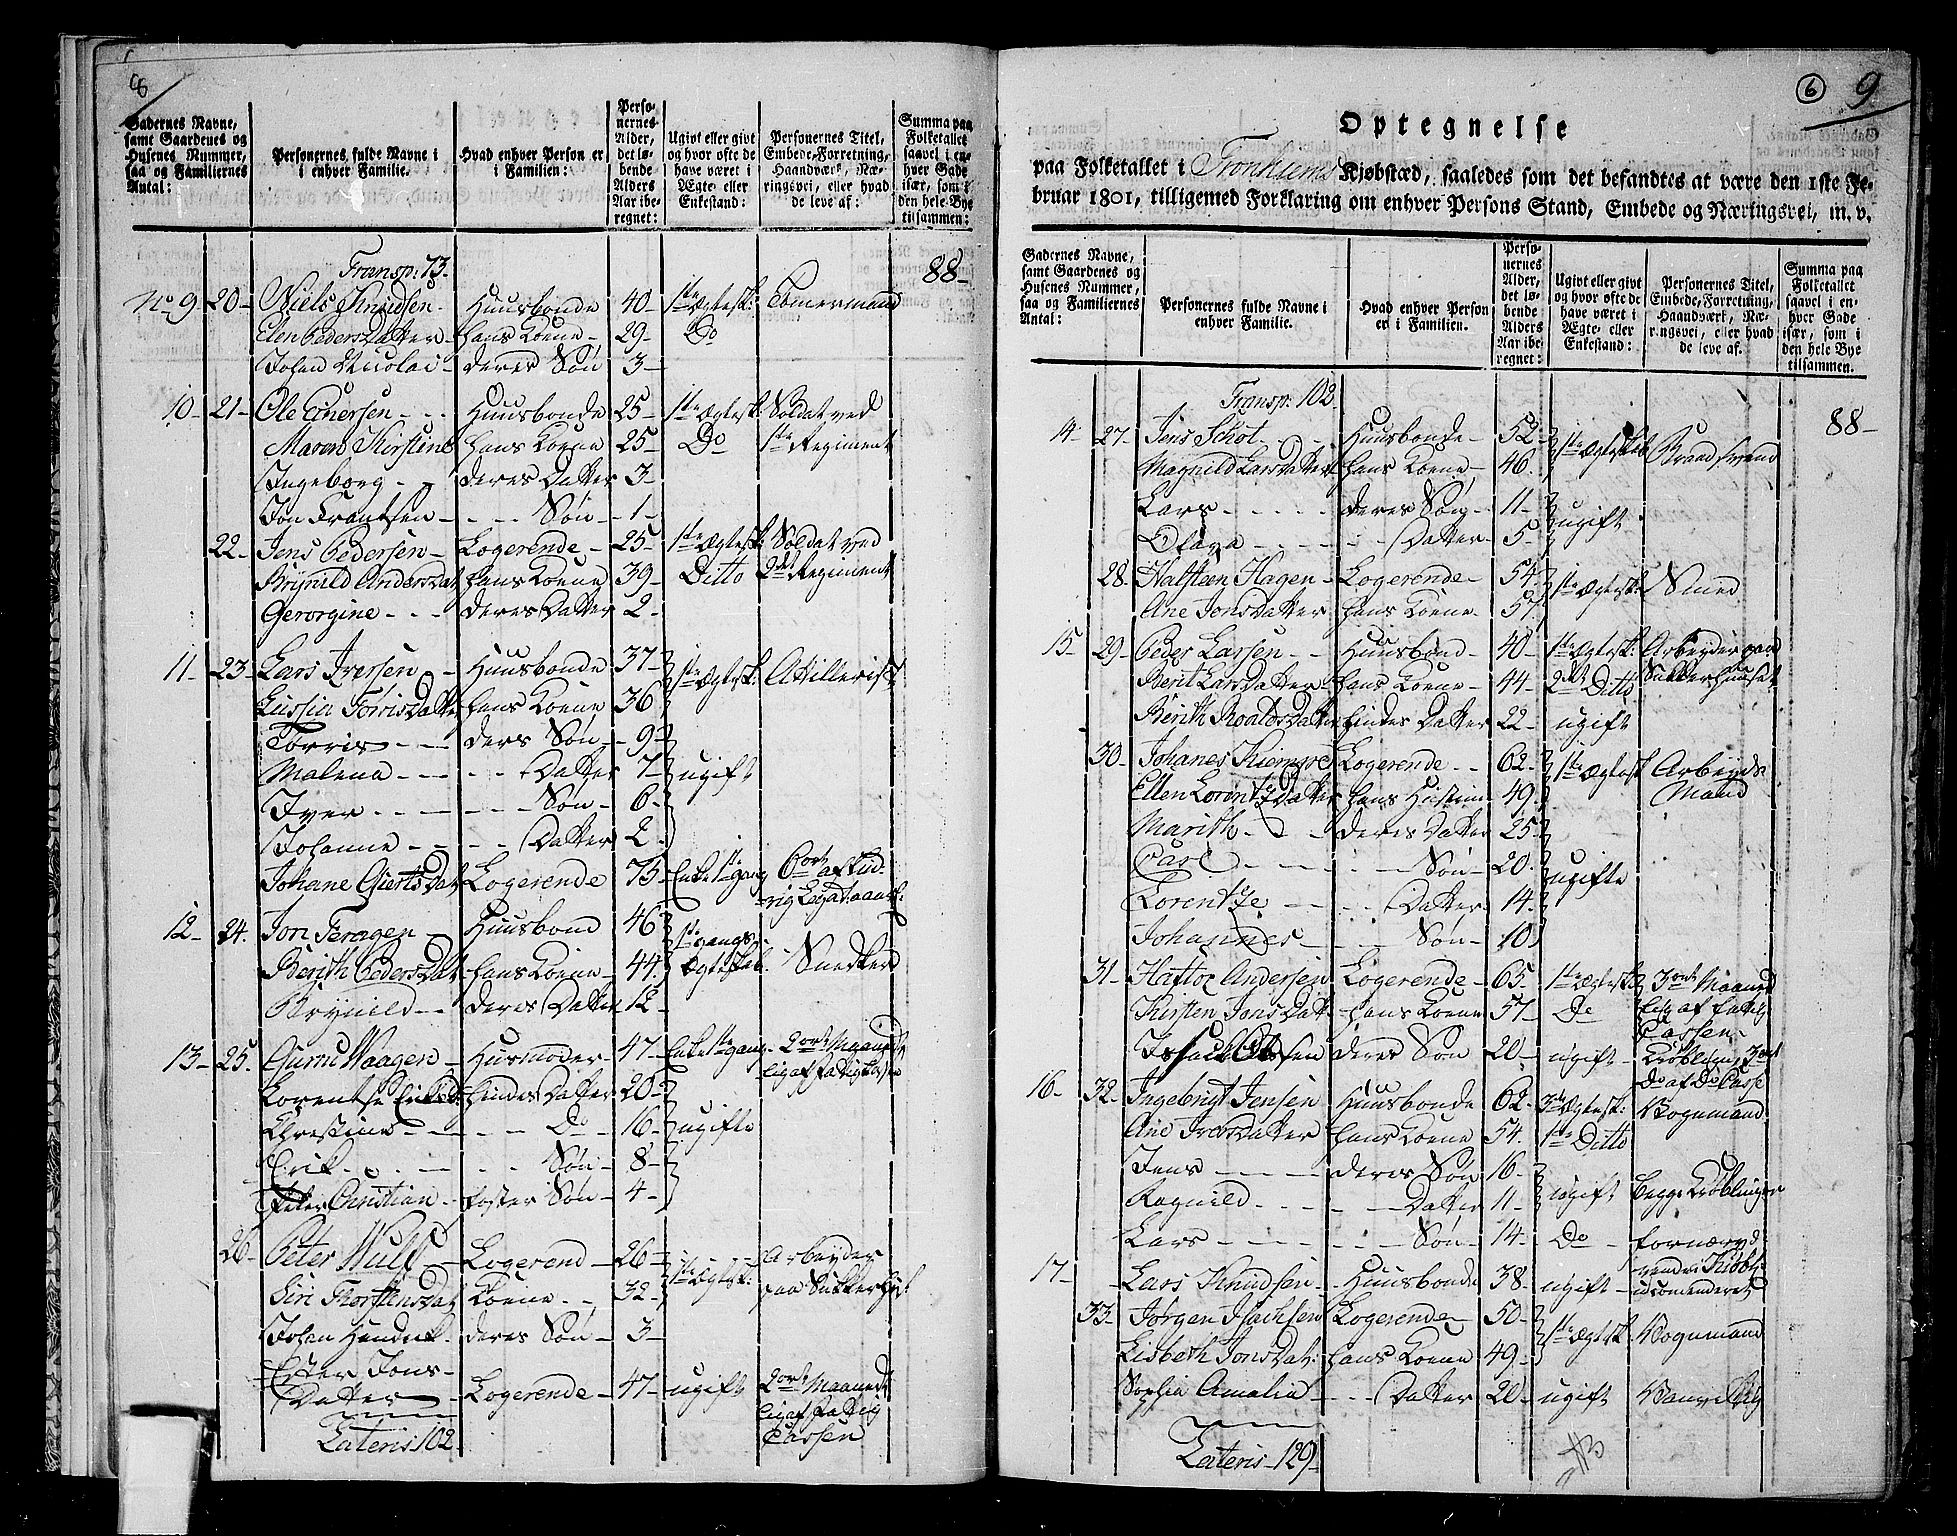 8
Gadernes Navne, samt Gaardenes og Husenes Nummer, saa og Familiernes Antal:
Personernes fulde Navne i enhver Familie.
Hvad enhver Person er i Familien:
Personernes Alder, det løbende Alders Aar iberegnet:
Ugivt eller givt og hvor ofte de have været i Ægte- eller Enkestand:
Personernes Titel, Embede, Forretning, Haandværk, Næringsvei, eller hvad de leve af:
Summa paa Folketallet saavel i enhver Gade især, som i den hele Bye tilsammen:
Transp: 73. 88-
No 9 20- Niels Knudsen- Huusbonde 40- 1ste Ægtesk: Tømermand
Elen Peders Datter- hans Kone- 29- Do
Johan Nicolai- deres Søn 3-
10- 21- Ole Einersen - - - Huusbonde 25- 1ste Ægtesk: Soldat ved
Maren Kirstine hans Kone 25- Do 1ste Regiment
Ingeborg - - deres Datter 3-
Jon Frantsen - - - - Søn - 1-
22- Jens Pedersen- Logerende - 25- 1ste Ægtesk: Soldat ved
Brynild Anders Dat hans Kone 39- Ditto 2det Regiment
Gerorgine - - - deres Datter 2-
11- 23- Lars Iversen - Huusbonde 37- 1ste Ægtesk: Attillerist
Lussin Torris Datter hans Kone 36
Torris - - - ders Søn - 9-
Malena - - - - - Datter 7- ugift
Iver - - - - - Søn - 6-
Johanne - - - - - Datter 2-
Johane Gierts Dat Logerende 75- Enke 1ste gang 6 ort af
rig Legat maanl:
12- 24. Jon Feragen - Huusbond 46 1ste gangs
Berith Peders Dat hans Kone- 44. Ægteskab. Snedker
Brynild - - deres Datter 12-
13- 25. Guru Waagen - Husmoder - 47- Enke 1ste gang- 2 ort Maaned
lig af fattig kassen
Lorentse hindes Datter 20-
Christine - - - - - Do - 16- ugifte
Erik - - - - - - Søn - 8-
Peter Christian - foster Søn - 4-
26- Peter Wulf - Logerend - 26- Arbeyder
Siri Thorstens Dat Kone - - 32- 1ste Ægtesk: paa Sukker Hus:
Johan Hendrik- deres Søn - 3-
Ester Jons-
Datter - Logerende - 47- ugift 2 ort Maaned
lig af fattig
Cassen
Lateris 102-
6 9
Optegnelse
paa Folketallet i Tronhiems Kjøbstæd, saaledes som det befandtes at være den 1ste Februar 1801, tilligemed Forklaring om enhver Persons Stand, Embede og Næringsvei, m. v.
Gadernes Navne, samt Gaardenes og Husenes Nummer, saa og Familiernes Antal:
Personernes fulde Navne i enhver Familie.
Hvad enhver Person er i Familien.
Personernes Alder, det løbende Alders Aar iberegnet:
Ugivt eller givt og hvor ofte de have været i Ægte- eller Enkestand:
Personernes Titel, Embede, Forretning, Haandværk, Næringsvei, eller hvad de leve af.
Summa paa Folketallet saavel i enhver Gade især, som i den hele Bye tilsammen.
Transp: 102. 88-
14- 27- Jens Schot - - - Huusbonde- 52- 1ste Ægteskab Brandsvend
Magnild Lars Datter hans Kone- 46.
Lars - - - - - deres Søn - 11- ugift
Olava - - - - - - Datter- 5-
28- Halsteen Hagen- Logerende- 54- 1ste Ægtesk: Smed
Ane Jons Datter hans Kone- 57
15- 29- Peder Larsen - - Huusbond- 40- 1ste Ægtesk: Arbeyder paa
Berit Lars Datter- hans Kone- 44- 2det Ditto Sukkerhuuset
Berith Roalds Datter hindes Datter 22- ugift
30- Johanes Logerende - - 62- 1ste Ægtesk Arbeyds
Ellen Lorentz Datter hans Hustrue- 49- Mand
Marith - - - deres Datter 25-
Carl - - - - - - Søn - 20- ugifte
Lorentze - - - - - Datter- 14-
Johannes - - - - Søn - 10
31- Haftor Andersen Logerende- 65- 1ste Ægtesk 3 ort Maaned
Kirsten Jons Datt hans Kone 57- Do lig af fattig
Cassen-
deres Søn 20- ugift- Krøbling 3 ort
Do af Do Casse
16- 32- Ingebrigt Jensen Huusbonde 62- 3die Ægtesk: Vognmand
Ane Ivers Datter hans Kone 54- 1ste Ditto
Jens - - - - deres Søn 16- ugift begge Krøblinger
Ragnild - - - - - Datter 11-
Lars - - - - - - Søn - 14- Do-
17- Lars Knudsen - Huusbonde 38- ugift- udcomenderet
33- Jørgen Logerende- 50- 1ste Ægtesk: Vognmand
Lisbeth Jons Dat: hans Kone 49-
Sophia Amalia - - - Datter 20- ugift
Lateris - 129-